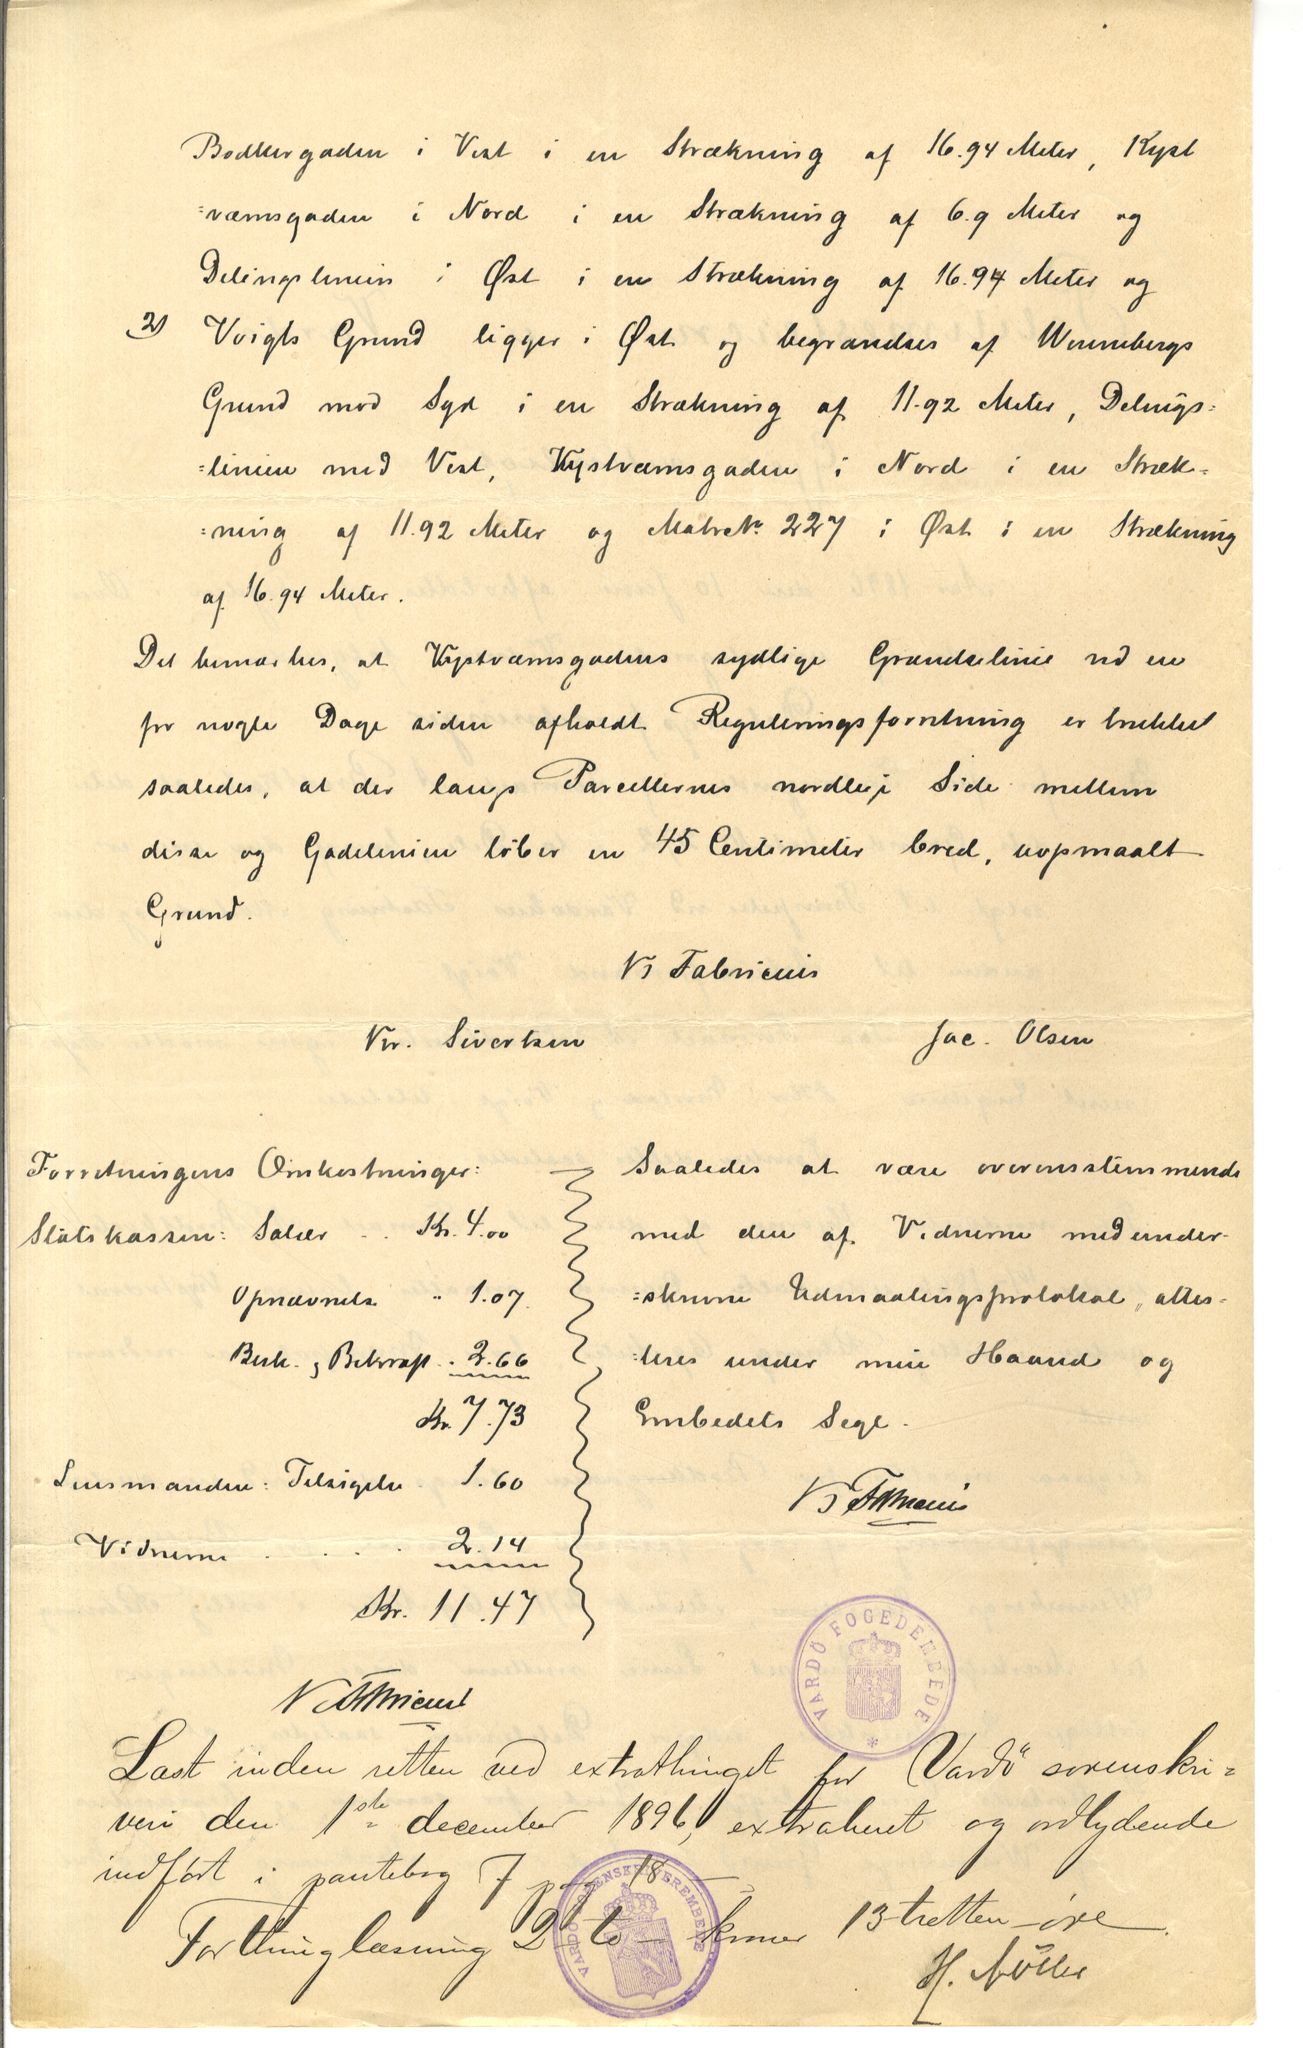 Bødkergaden i Vest i en Strækning af 16.94 Meter, Kyst
=værnsgaden i Nord i en Strækning af 6.9 Meter og
Delingslinien i Øst i en Strækning af 16.94 Meter og
2) Voigts Grund ligger i Øst og begrændses af Wennebergs
Grund mod Syd i en Strækning af 11.92 Meter, Delings=
=linien mod Vest, Kystværnsgaden i Nord i en Stræk=
=ning af 11.92 Meter og Matr.No. 227 i Øst i en Strækning
af 16.94 Meter.
Det bemærkes, at Kystværnsgadens sydlige Grændselinie ved en
for nogle Dage siden afholdt Reguleringsforretning er trukket
saaledes, at der langs Parcellernes nordlige Side mellem
disse og Gadelinien løber en 45 Centimeter bred, uopmaalt
Grund.
Fabricius
Kr. Sivertsen Jac. Olsen
Forretningens Omkostninger:
Statskassen: Salær .. Kr. 4.00
Opnævnelse " 1.07
Besk. og Bekræft. . 2.66
Kr. 7.73
Lensmanden: Tilsigelse 1.60
Vidnerne . . . . 2.14
Kr. 11.47
Saaledes at være overensstemmende
med den af Vidnerne medunder-
=skrevne Udmaalingsprotokol, attes-
=teres under min Haand og
Embedets Segl.
VARDÖ FOGEDEMBEDE
Læst inden retten ved extrathinget for Vardö sorenskri=
veri den 1ste december 1896, extraheret og ordlydende
indført i pantebog 7 pag 18
For thinglæsning 2 - to - kroner 13 tretten øre.
VARDÖ SORENSKRIVEREMBEDE
H. Möller